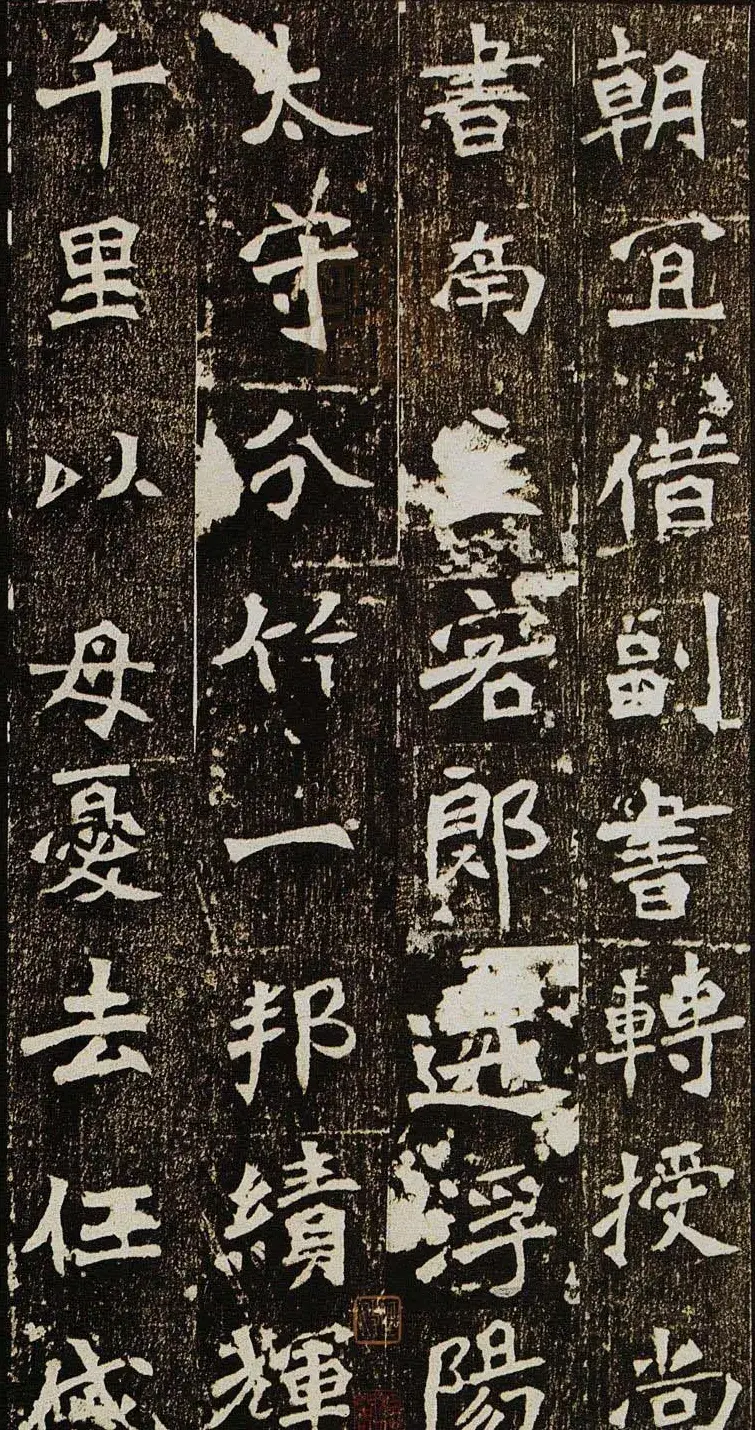 朝宜借副書轉授尚
書南主客郎遷浮陽
太守分竹一邦績輝
千里以母憂去任